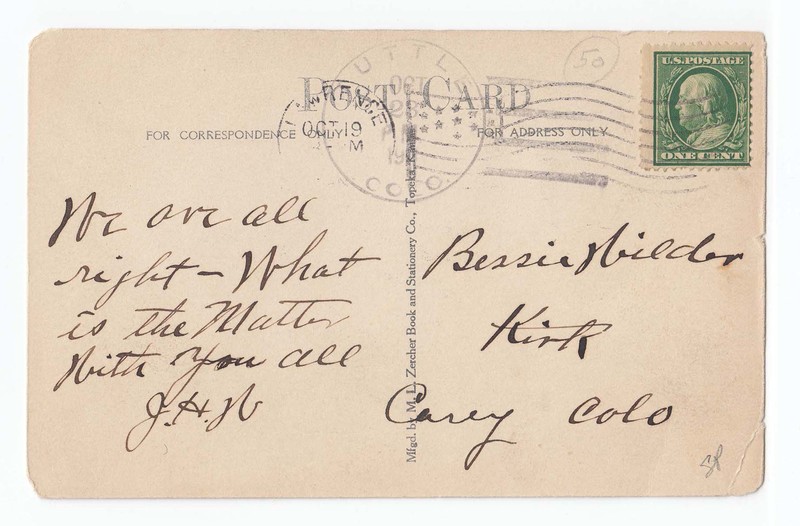 50
U.S. POSTAGE
ONE CENT
POST CARD
TUTTLE
OCT
COLO.
LAWRENCE
OCT 19
M
FOR CORRESPONDENCE ONLY
FOR ADDRESS ONLY
We are all
right — What
is the Matter
With You all
J.H.W
Mfgd. by M. L. Zercher Book and Stationery Co., Topeka, Kans.
Bessie Wilder
Kirk
Carey Colo